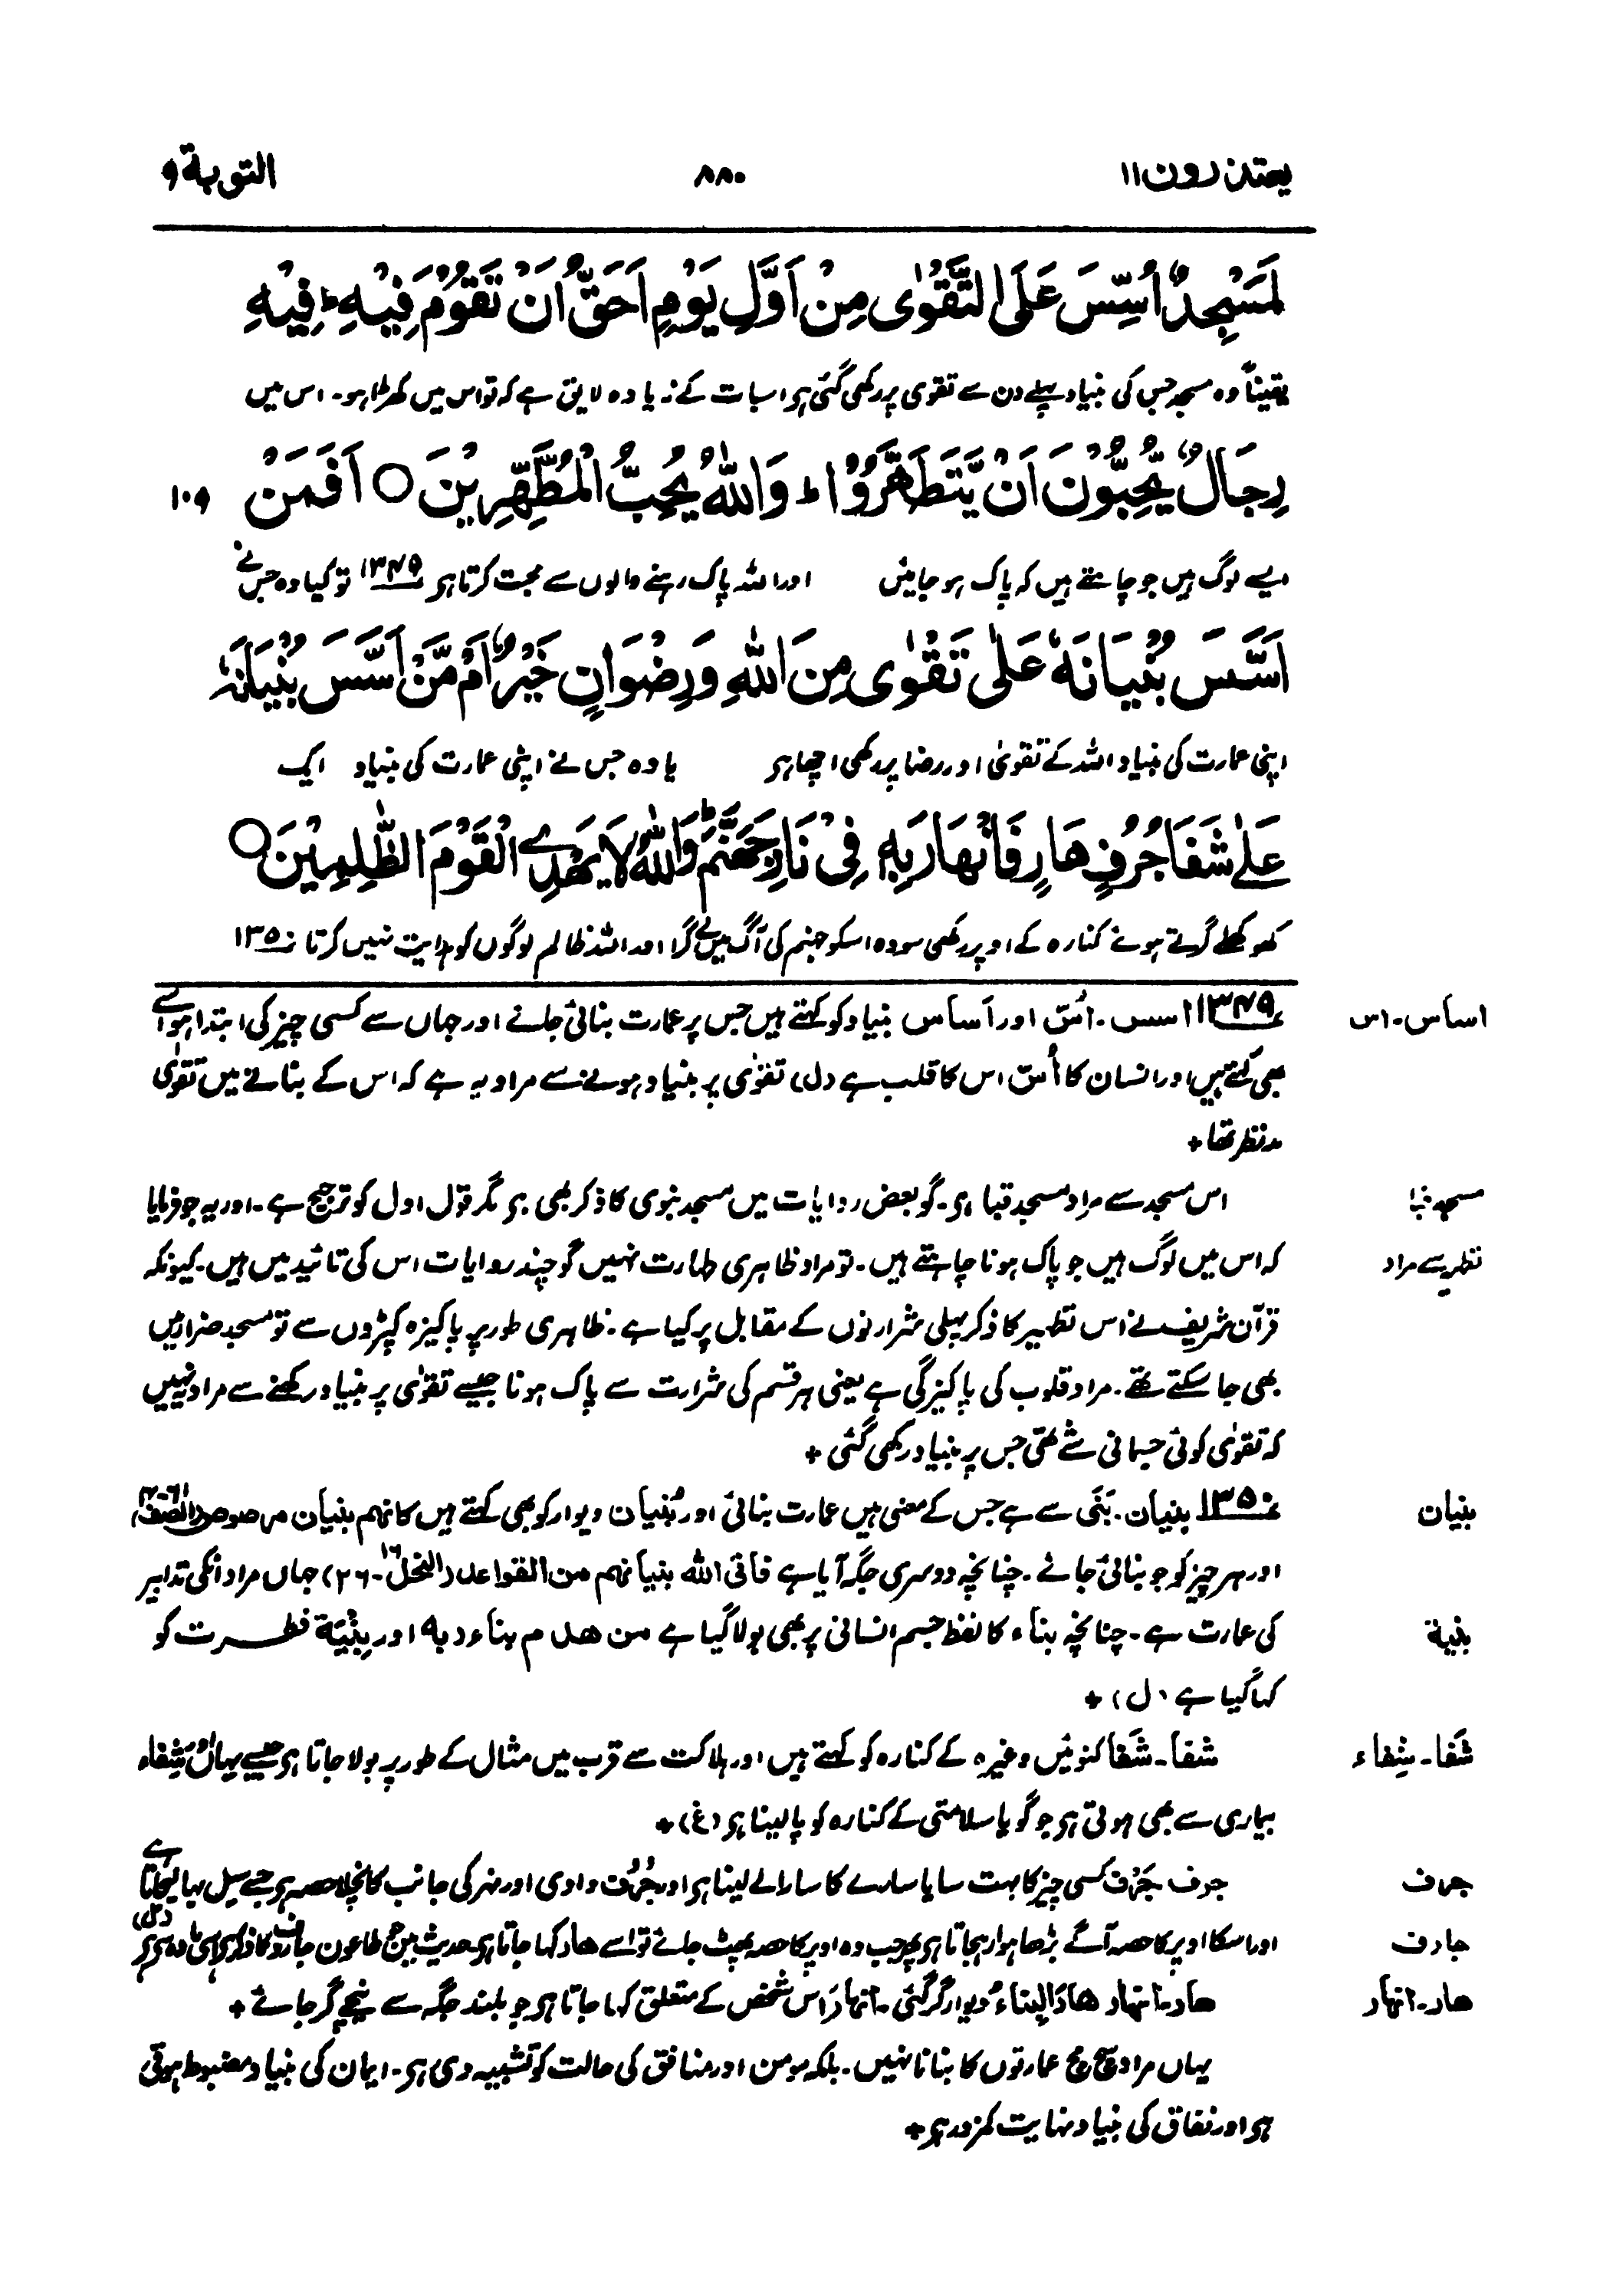 یعتذرون ۱۱ ۸۸۰ التوبة ۹
لَمَسْجِدٌ اُسِّسَ عَلَى التَّقْوٰى مِنْ اَوَّلِ يَوْمٍ اَحَقُّ اَنْ تَقُوْمَ فِيْهِ ؕ فِيْهِ
یقیناً وہ مسجد جس کی بنیاد پہلے دن سے تقویٰ پر رکھی گئی ہو اس بات کے زیادہ لایق ہے کہ تو اس میں کھڑا ہو۔ اس میں
رِجَالٌ يُّحِبُّوْنَ اَنْ يَّتَطَهَّرُوْا ؕ وَاللّٰهُ يُحِبُّ الْمُطَّهِّرِيْنَ ○ اَفَمَنْ ۱۰۹
ایسے لوگ ہیں جو چاہتے ہیں کہ پاک ہو جائیں اور اللہ پاک رہنے والوں سے محبت کرتا ہو ۱۳۴۹ تو کیا وہ جس نے
اَسَّسَ بُنْيَانَهٗ عَلٰى تَقْوٰى مِنَ اللّٰهِ وَرِضْوَانٍ خَيْرٌ اَمْ مَّنْ اَسَّسَ بُنْيَانَهٗ
اپنی عمارت کی بنیاد اللہ کے تقویٰ اور رضا پر رکھی اچھا ہو یا وہ جس نے اپنی عمارت کی بنیاد ایک
عَلٰى شَفَا جُرُفٍ هَارٍ فَانْهَارَ بِهٖ فِىْ نَارِ جَهَنَّمَ ؕ وَاللّٰهُ لَا يَهْدِى الْقَوْمَ الظّٰلِمِيْنَ ○
کھوکھلے گرتے ہوئے کنارہ کے اوپر رکھی سو وہ اسکو جہنم کی آگ میں لے گرا اور اللہ ظالم لوگوں کو ہدایت نہیں کرتا ۱۳۵۰
اساس۔ اس ۱۳۴۹ اسس۔ اُسّ اور اَساس بنیاد کو کہتے ہیں جس پر عمارت بنائی جائے اور جہاں سے کسی چیز کی ابتدا ہو اسے
بھی کہتے ہیں اور انسان کا اُسّ اس کا قلب ہے (ل) تقویٰ پر بنیاد ہونے سے مراد یہ ہے کہ اس کے بنانے میں تقویٰ
مدنظر تھا +
مسجد قبا اس مسجد سے مراد مسجد قبا ہو۔ گو بعض روایات میں مسجد نبوی کا ذکر بھی ہو مگر قول اول کو ترجیح ہے۔ اور یہ جو فرمایا
تطہیر سے مراد کہ اس میں لوگ ہیں جو پاک ہونا چاہتے ہیں۔ تو مراد ظاہری طہارت نہیں گو چند روایات اس کی تائید میں ہیں۔ کیونکہ
قرآن شریف نے اس تطہیر کا ذکر پہلی شرارتوں کے مقابل پر کیا ہے۔ ظاہری طور پر پاکیزہ کپڑوں سے تو مسجد ضرار میں
بھی جا سکتے تھے۔ مراد قلوب کی پاکیزگی ہے یعنی ہر قسم کی شرارت سے پاک ہونا جیسے تقویٰ پر بنیاد رکھنے سے مراد یہ نہیں
کہ تقویٰ کوئی جسمانی شے تھی جس پر بنیاد رکھی گئی +
بنیان ۱۳۵۰ بنیان۔ بَنٰی سے ہے جس کے معنی ہیں عمارت بنائی اور بُنیان دیوار کو بھی کہتے ہیں کانہم بنیان مرصوص (الصف ۶۱-۴)
اور ہر چیز کو جو بنائی جائے۔ چنانچہ دوسری جگہ آیا ہے فاتی اللہ بنیانہم من القواعد (النحل ۱۶-۲۶) جہاں مراد انکی تدابیر
بنیة کی عمارت ہے۔ چنانچہ بناء کا لفظ جسم انسانی پر بھی بولا گیا ہے من ھدم بناء ربہ اور بِنْیَة فطرت کو
کہا گیا ہے (ل) +
شَفا۔ شِفاء شفا۔ شَفا کنوئیں وغیرہ کے کنارہ کو کہتے ہیں اور ہلاکت سے قرب میں مثال کے طور پر بولا جاتا ہو جیسے یہاں اور شِفاء
بیماری سے بھی ہوتی ہو جو گویا سلامتی کے کنارہ کو پا لینا ہو (غ) +
جرف جرف۔ جَرْف کسی چیز کا بہت سا یا سارے کا سارا لے لینا ہو اور جُرُف وادی اور نہر کی جانب کا نچلا حصہ ہو جسے سیل بہا لیجاتا ہے
جارف اور اسکا اوپر کا حصہ آگے بڑھا ہوا رہجاتا ہو پھر جب وہ اوپر کا حصہ پھٹ جائے تو اسے ھار کہا جاتا ہو حدیث میں جو طاعون جارف کا ذکر ہو (ل)
ھار۔ انہار ھار۔ انہار ھارَ البناءُ دیوار گر گئی۔ انہارَ اس شخص کے متعلق کہا جاتا ہو جو بلند جگہ سے نیچے گر جائے +
یہاں مراد سچ مچ عمارتوں کا بنانا نہیں۔ بلکہ مومن اور منافق کی حالت کو تشبیہ دی ہو۔ ایمان کی بنیاد مضبوط ہوتی
ہو اور نفاق کی بنیاد نہایت کمزور ہو +